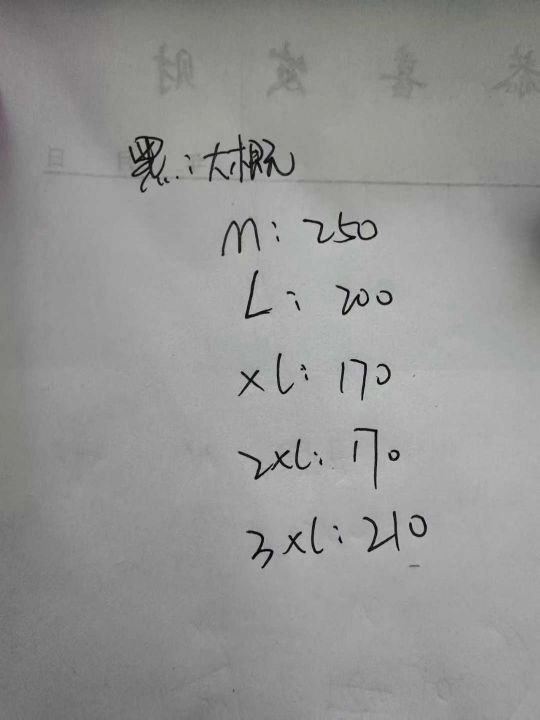 恭喜发财
月 日
黑:大概
M: 250
L: 200
XL: 170
2XL: 170
3XL: 210